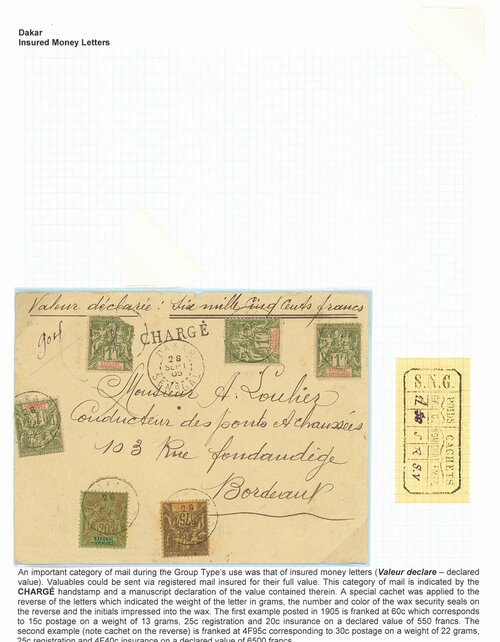 Dakar
Insured Money Letters
Valeur déclarée : Six mille Cinq Cents francs
CHARGÉ
26
SEPT
05
SENEGAL
Monsieur A. Loulier
Conducteur des ponts & chaussées
103 Rue fondandège
Bordeaux
S.N.G.
POIDS CACHETS
An important category of mail during the Group Type's use was that of insured money letters (Valeur declare – declared
value). Valuables could be sent via registered mail insured for their full value. This category of mail is indicated by the
CHARGÉ handstamp and a manuscript declaration of the value contained therein. A special cachet was applied to the
reverse of the letters which indicated the weight of the letter in grams, the number and color of the wax security seals on
the reverse and the initials impressed into the wax. The first example posted in 1905 is franked at 60c which corresponds
to 15c postage on a weight of 13 grams, 25c registration and 20c insurance on a declared value of 550 francs. The
second example (note cachet on the reverse) is franked at 4F95c corresponding to 30c postage on a weight of 22 grams,
25c registration and 4F40c insurance on a declared value of 6500 francs.